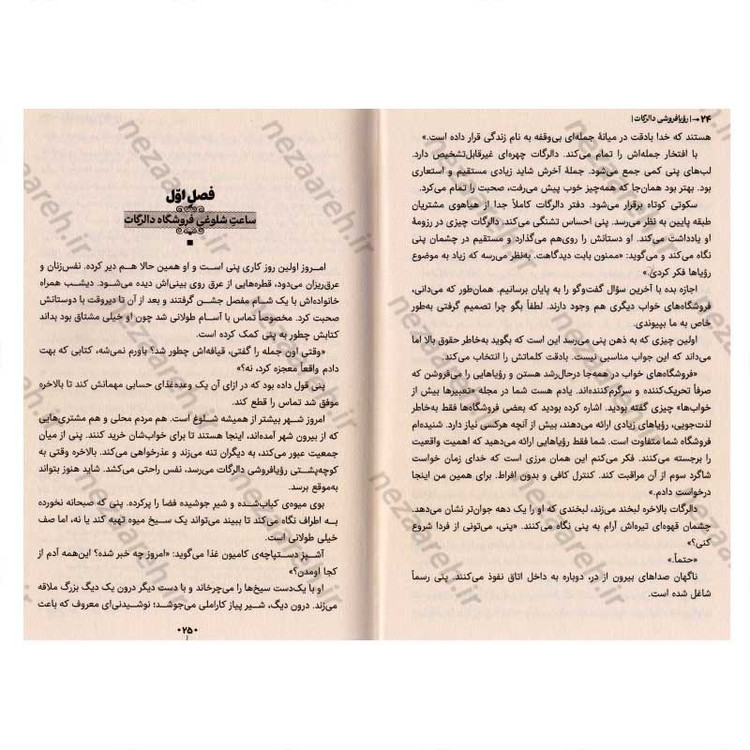 ۲۴ ⟶ | رؤیافروشی دالرگات |
هستند که خدا بادقت در میانهٔ جمله‌ای بی‌وقفه به نام زندگی قرار داده است.»
با افتخار جمله‌اش را تمام می‌کند. دالرگات چهره‌ای غیرقابل‌تشخیص دارد.
لب‌های پنی کمی جمع می‌شود. جملهٔ آخرش شاید زیادی مستقیم و استعاری
بود. بهتر بود همان‌جا که همه‌چیز خوب پیش می‌رفت، صحبت را تمام می‌کرد.
سکوتی کوتاه برقرار می‌شود. دفتر دالرگات کاملاً جدا از هیاهوی مشتریان
طبقه پایین به نظر می‌رسد. پنی احساس تشنگی می‌کند. دالرگات چیزی در رزومهٔ
او یادداشت می‌کند. او دستانش را روی‌هم می‌گذارد و مستقیم در چشمان پنی
نگاه می‌کند و می‌گوید: «ممنون بابت دیدگاهت. به‌نظر می‌رسه که زیاد به موضوع
رؤیاها فکر کردی.»
اجازه بده با آخرین سؤال گفت‌وگو را به پایان برسانیم. همان‌طور که می‌دانی،
فروشگاه‌های خواب دیگری هم وجود دارند. لطفاً بگو چرا تصمیم گرفتی به‌طور
خاص به ما بپیوندی.
اولین چیزی که به ذهن پنی می‌رسد این است که بگوید به‌خاطر حقوق بالا اما
می‌داند که این جواب مناسبی نیست. بادقت کلماتش را انتخاب می‌کند.
«فروشگاه‌های خواب در همه‌جا درحال‌رشد هستن و رؤیاهایی را می‌فروشن که
صرفاً تحریک‌کننده و سرگرم‌کننده‌اند. یادم هست شما در مجله «تعبیرها بیش از
خواب‌ها» چیزی گفته بودید. اشاره کرده بودید که بعضی فروشگاه‌ها فقط به‌خاطر
لذت‌جویی، رؤیاهای زیادی ارائه می‌دهند، بیش از آنچه هرکسی نیاز دارد. شنیده‌ام
فروشگاه شما متفاوت است. شما فقط رؤیاهایی ارائه می‌دهید که اهمیت واقعیت
را برجسته می‌کنند. فکر می‌کنم این همان مرزی است که خدای زمان خواست
شاگرد سوم از آن مراقبت کند. کنترل کافی و بدون افراط. برای همین من اینجا
درخواست دادم.»
دالرگات بالاخره لبخند می‌زند، لبخندی که او را یک دهه جوان‌تر نشان می‌دهد.
چشمان قهوه‌ای تیره‌اش آرام به پنی نگاه می‌کنند. «پنی، می‌تونی از فردا شروع
کنی؟»
«حتماً.»
ناگهان صداهای بیرون از در، دوباره به داخل اتاق نفوذ می‌کنند. پنی رسماً
شاغل شده است.
فصل اوّل
ساعتِ شلوغیِ فروشگاه دالرگات
امروز اولین روز کاری پنی است و او همین حالا هم دیر کرده. نفس‌زنان و
عرق‌ریزان می‌دود، قطره‌هایی از عرق روی بینی‌اش دیده می‌شود. دیشب همراه
خانواده‌اش با یک شام مفصل جشن گرفتند و بعد از آن تا دیروقت با دوستانش
صحبت کرد. مخصوصاً تماس با آسام طولانی شد چون او خیلی مشتاق بود بداند
کتابش چطور به پنی کمک کرده است.
«وقتی اون جمله را گفتی، قیافه‌اش چطور شد؟ باورم نمی‌شه، کتابی که بهت
دادم واقعاً معجزه کرد، نه؟»
پنی قول داده بود که در ازای آن یک وعده‌غذای حسابی مهمانش کند تا بالاخره
موفق شد تماس را قطع کند.
امروز شهر بیشتر از همیشه شلوغ است. هم مردم محلی و هم مشتری‌هایی
که از بیرون شهر آمده‌اند، اینجا هستند تا برای خواب‌شان خرید کنند. پنی از میان
جمعیت عبور می‌کند، به دیگران تنه می‌زند و عذرخواهی می‌کند. بالاخره وقتی به
کوچه‌پشتی رؤیافروشی دالرگات می‌رسد، نفس راحتی می‌کشد. شاید هنوز بتواند
به‌موقع برسد.
بوی میوه‌ی کباب‌شده و شیرِ جوشیده فضا را پرکرده. پنی که صبحانه نخورده
به اطراف نگاه می‌کند تا ببیند می‌تواند یک سیخ میوه تهیه کند یا نه، اما صف
خیلی طولانی است.
آشپزِ دستپاچه‌ی کامیون غذا می‌گوید: «امروز چه خبر شده؟ این‌همه آدم از
کجا اومدن؟»
او با یک‌دست سیخ‌ها را می‌چرخاند و با دست دیگر درون یک دیگ بزرگ ملاقه
می‌زند. درون دیگ، شیر پیاز کاراملی می‌جوشد؛ نوشیدنی‌ای معروف که باعث
•۲۵•
nezaareh.ir